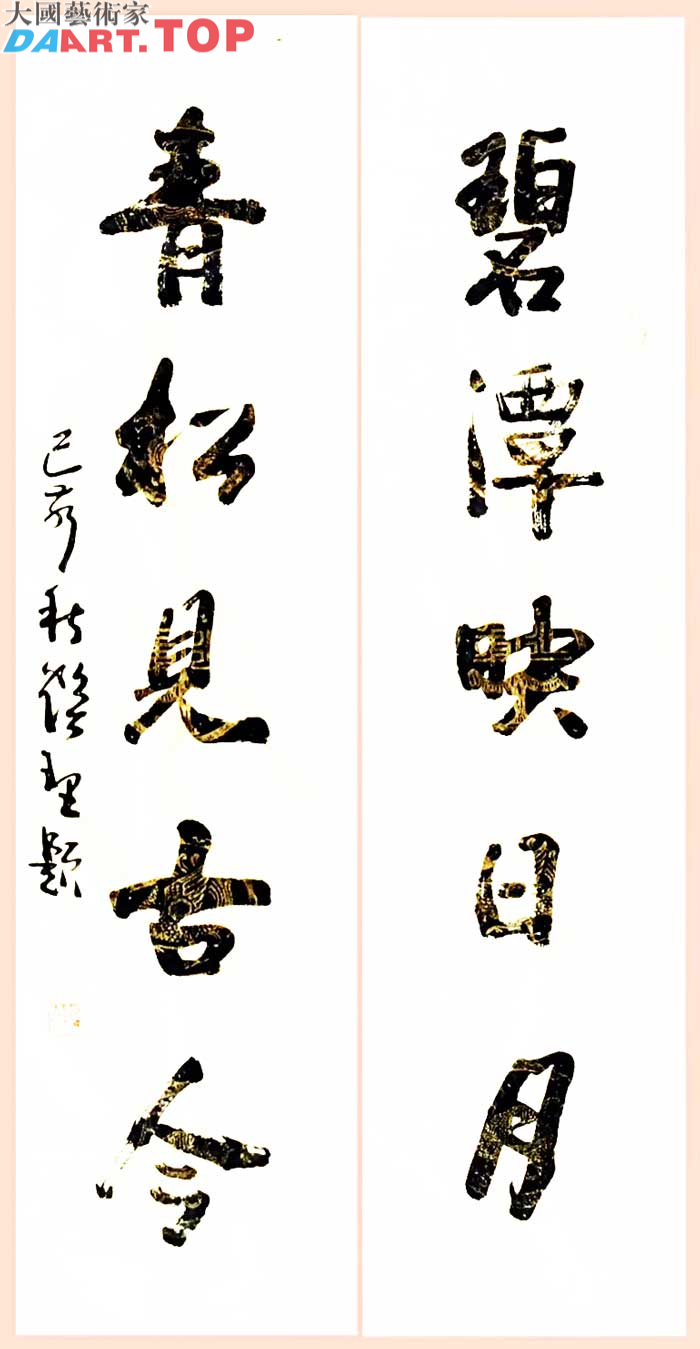 大國藝術家
DAART.TOP
碧潭映日月
青松見古今
己亥秋
聖題